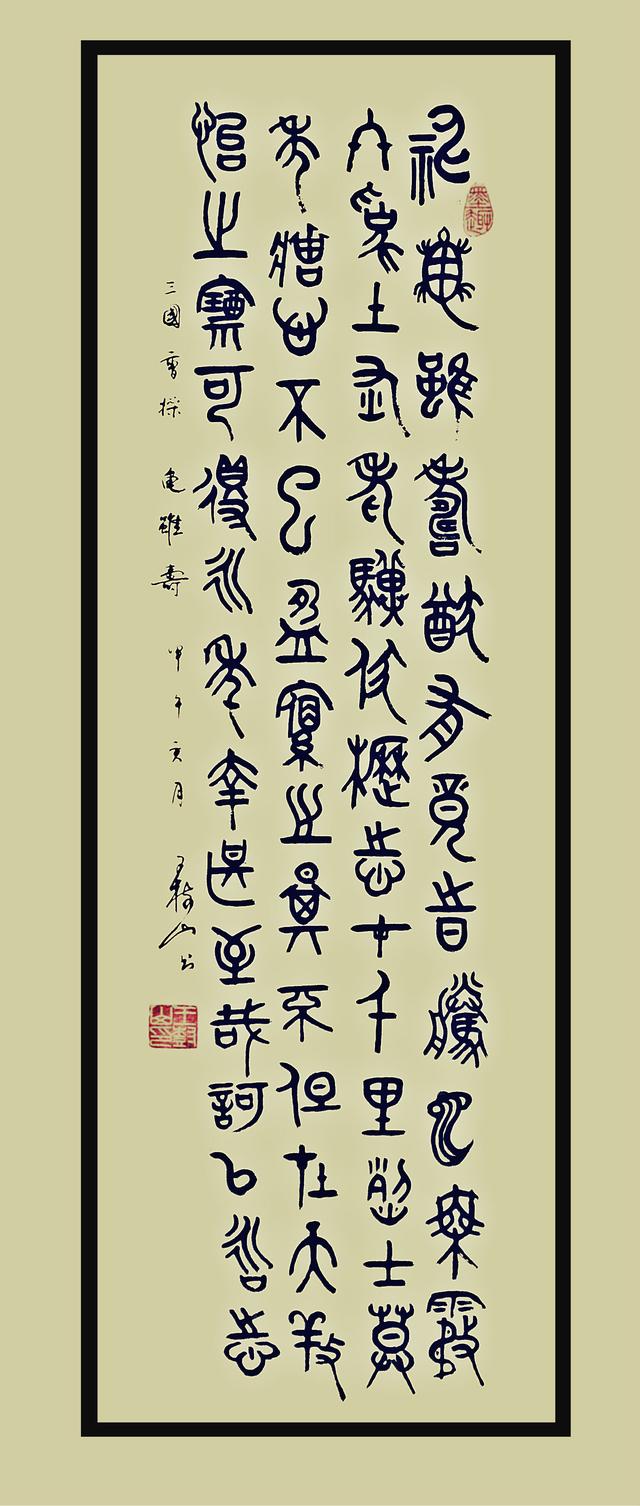 神龜雖壽猶有竟時騰蛇乘霧
終為土灰老驥伏櫪志在千里烈士莫
年壯心不已盈縮之期不但在天養
怡之福可得永年幸甚至哉訶以詠志
三國曹操 龜雖壽 甲午亥月 王樹山書